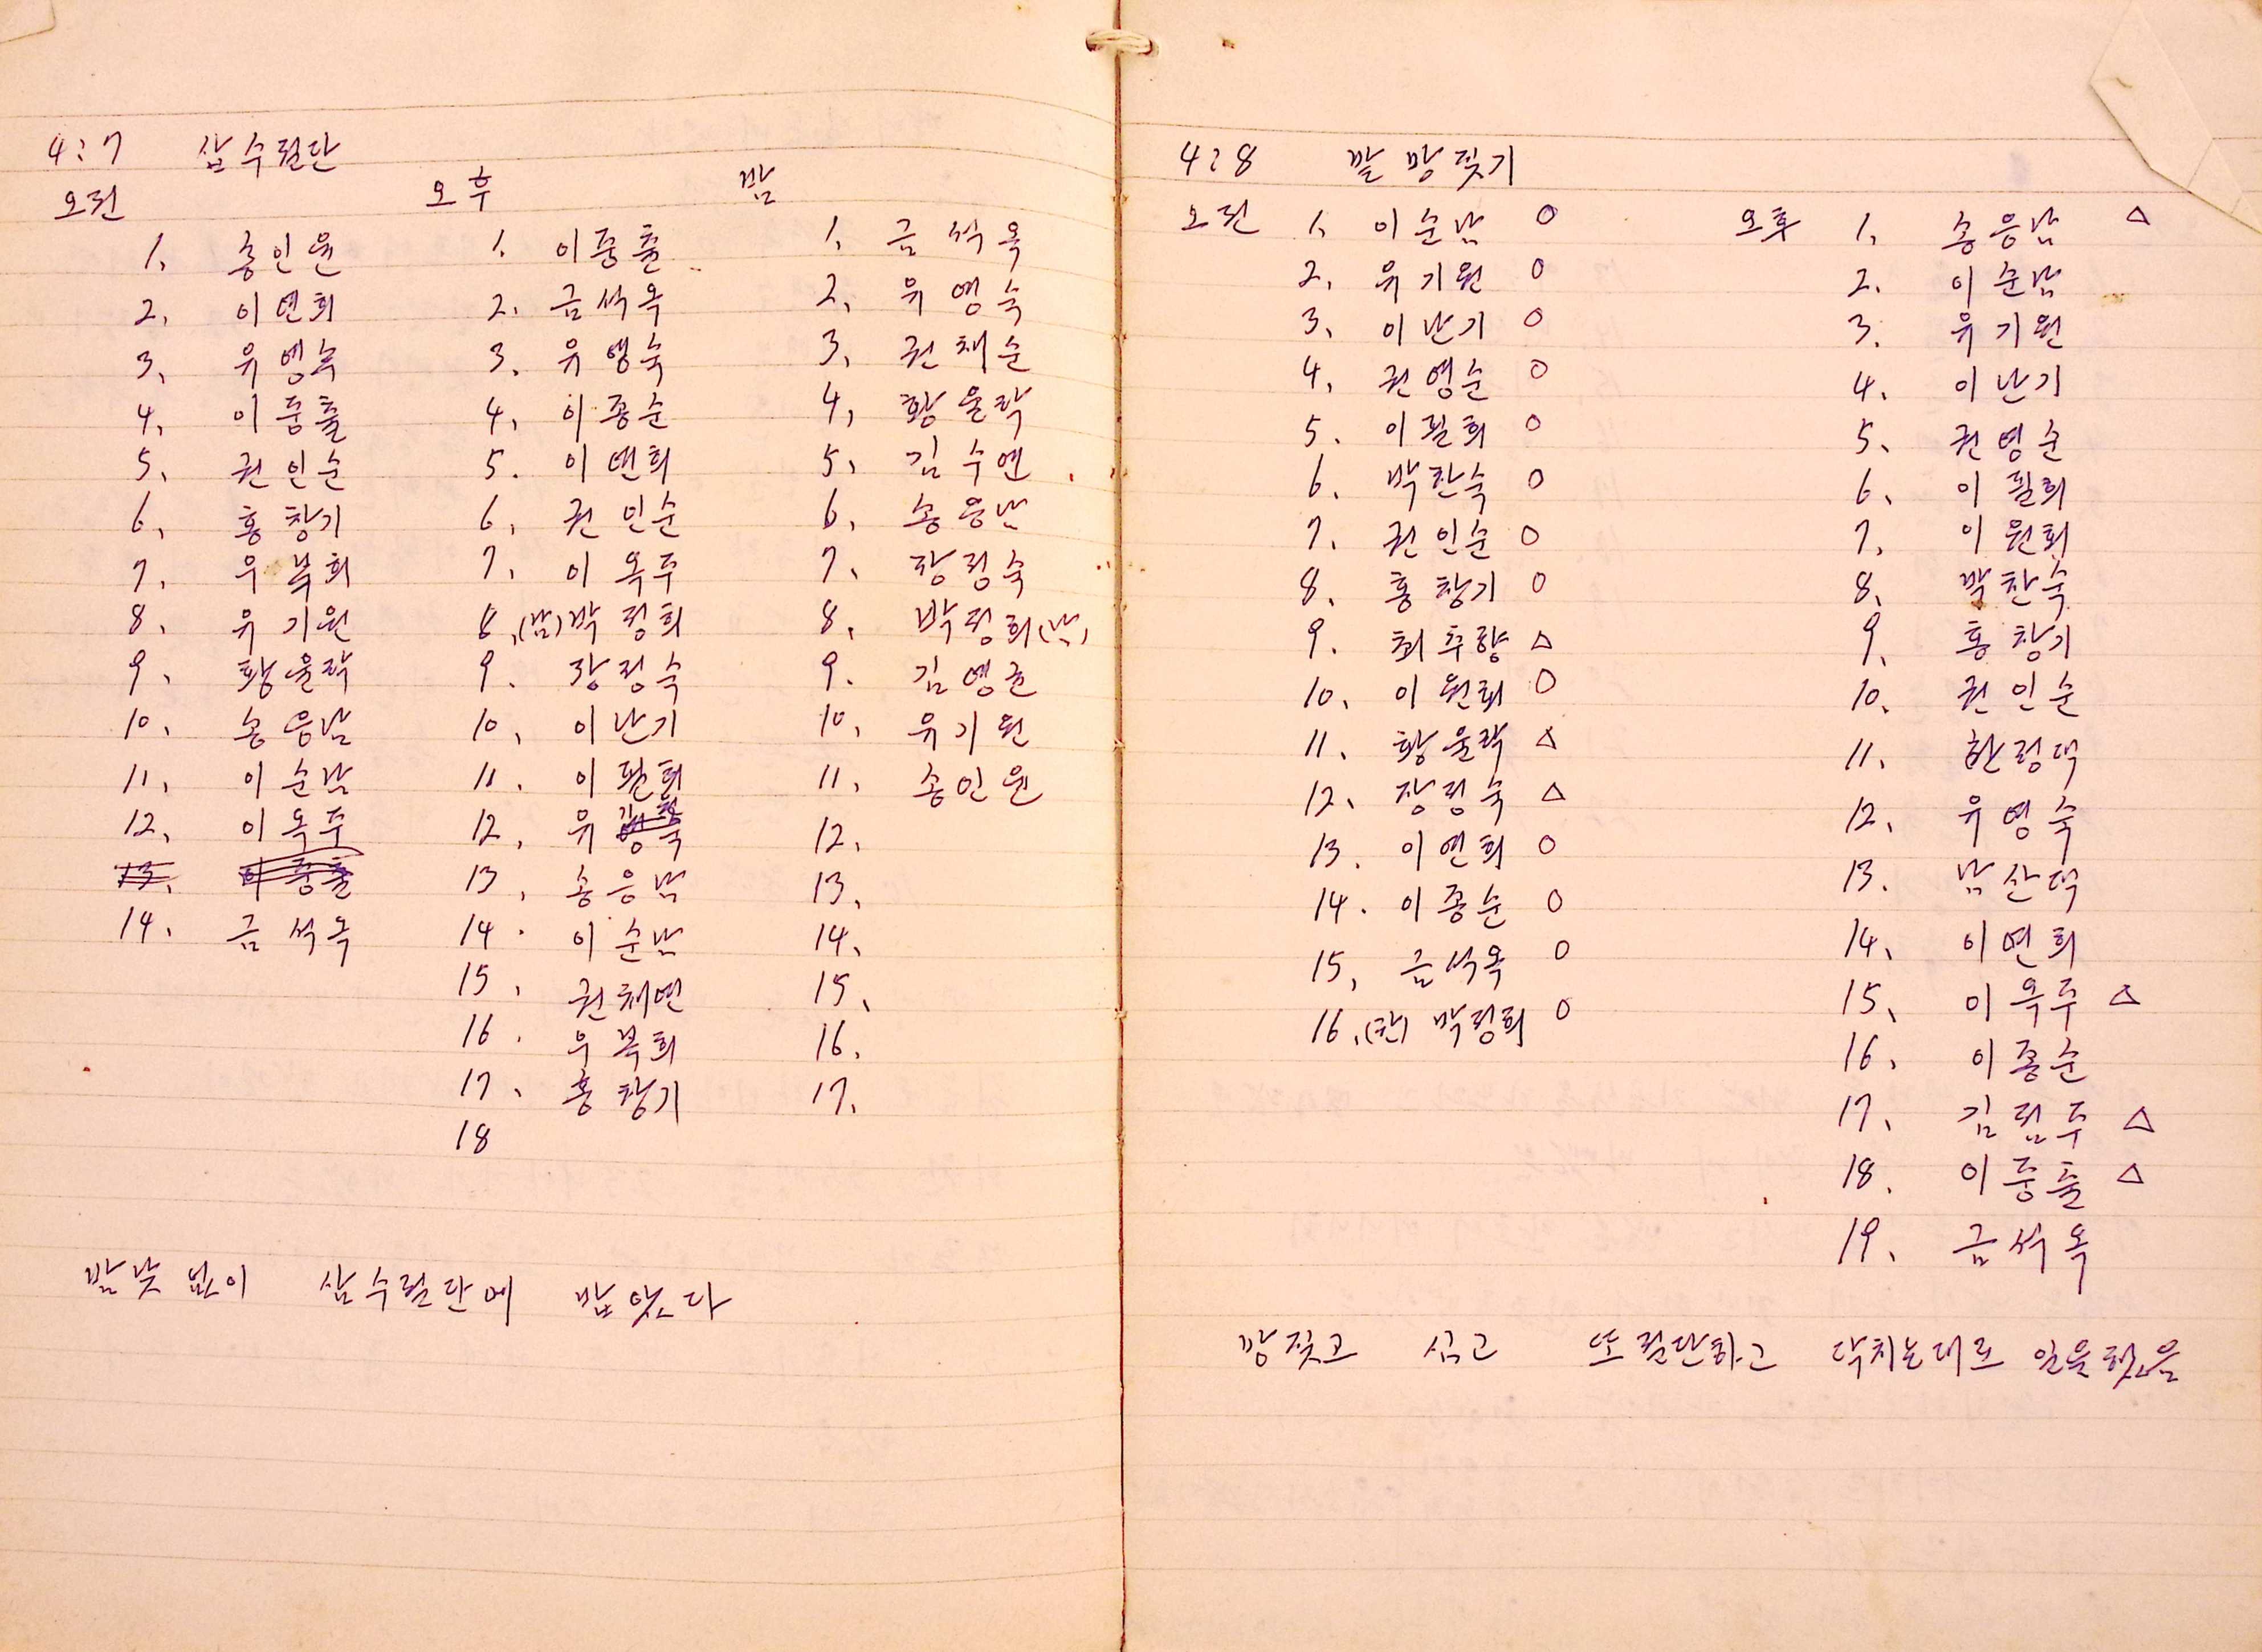 4:7 삽수절단
오전
1. 송인원
2. 이연희
3. 유영숙
4. 이중출
5. 권인순
6. 홍창기
7. 우복희
8. 유기원
9. 황윤락
10. 송응남
11. 이순남
12. 이옥주
13. 이중출
14. 금석옥
오후
1. 이중출
2. 금석옥
3. 유영숙
4. 이종순
5. 이연희
6. 권인순
7. 이옥주
8. (남)박정희
9. 장정숙
10. 이난기
11. 이필희
12. 유
13. 송응남
14. 이순남
15. 권채연
16. 우복희
17. 홍창기
18
밤
1. 금석옥
2. 유영숙
3. 권채순
4. 황윤락
5. 김수연
6. 송응남
7. 장정숙
8. 박정희(남)
9. 김영근
10. 유기원
11. 송인원
12.
13.
14.
15.
16.
17.
밤낮없이 삽수절단에 밥앗다
4:8 깔망찢기
오전
1. 이순남 O
2. 유기원 O
3. 이난기 O
4. 권영순 O
5. 이필희 O
6. 박찬숙 O
7. 권인순 O
8. 홍창기 O
9. 최추향 △
10. 이원희 O
11. 황윤락 △
12. 장정숙 △
13. 이연희 O
14. 이종순 O
15. 금석옥 O
16. (찬) 박정희 O
오후
1. 송응남 △
2. 이순남
3. 유기원
4. 이난기
5. 권영순
6. 이필희
7. 이원희
8. 박찬숙
9. 홍창기
10. 권인순
11. 한정댁
12. 유영숙
13. 남산댁
14. 이연희
15. 이옥주 △
16. 이종순
17. 김점주 △
18. 이중출 △
19. 금석옥
망찢고 심고 또 절단하고 닥치는대로 일을 했음